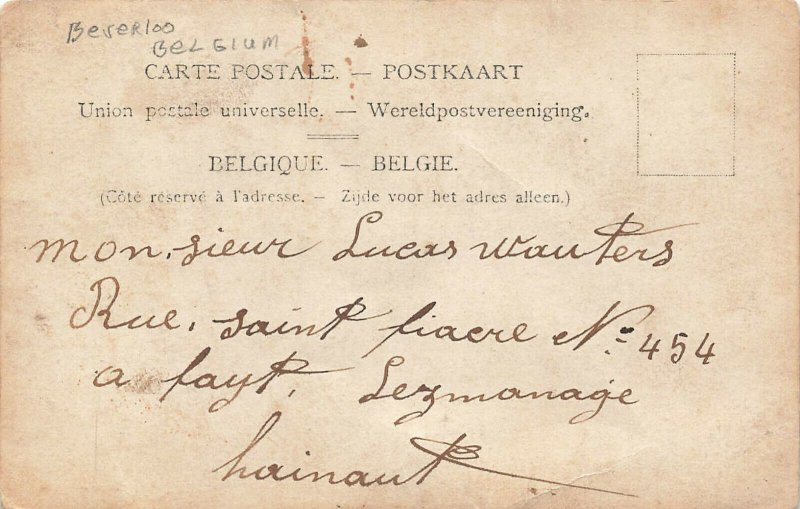 Beverloo
BELGIUM
CARTE POSTALE. — POSTKAART
Union postale universelle. — Wereldpostvereeniging.
BELGIQUE. — BELGIE.
(Côté réservé à l'adresse. — Zijde voor het adres alleen.)
monsieur Lucas Wauters
Rue. saint fiacre Nº 454
a fayt. Lezmanage
hainaut